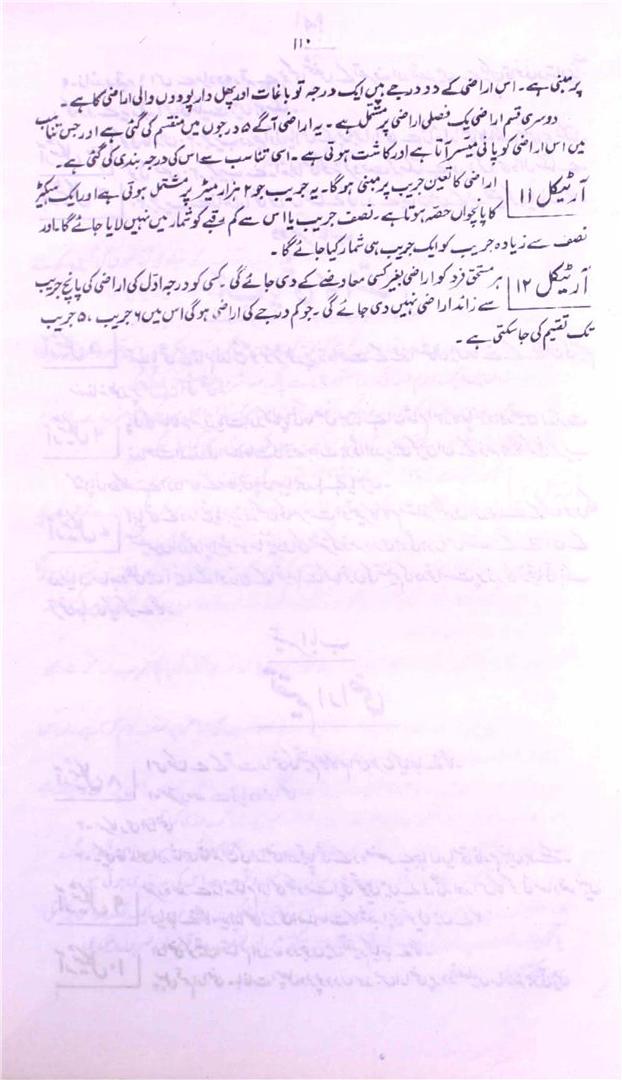 ۱۱۰
پر مبنی ہے۔ اس اراضی کے دو درجے ہیں ایک درجہ تو باغات اور پھل دار پودوں والی اراضی کا ہے۔
دوسری قسم اراضی یک فصلی اراضی پر مشتمل ہے۔ یہ اراضی آگے ۵ درجوں میں منقسم کی گئی ہے اور جس تناسب
میں اس اراضی کو پانی میسر آتا ہے اور کاشت ہوتی ہے۔ اسی تناسب سے اس کی درجہ بندی کی گئی ہے۔
آرٹیکل ۱۱ اراضی کا تعین جریب پر مبنی ہوگا۔ یہ جریب جو ۲ ہزار میٹر پر مشتمل ہوتی ہے اور ایک ہیکٹر
کا پانچواں حصّہ ہوتا ہے۔ نصف جریب یا اس سے کم رقبے کو شمار میں نہیں لایا جائے گا۔ اور
نصف سے زیادہ جریب کو ایک جریب ہی شمار کیا جائے گا۔
آرٹیکل ۱۲ ہر مستحق فرد کو اراضی بغیر کسی معاوضے کے دی جائے گی۔ کسی کو درجہ اوّل کی اراضی کی پانچ جریب
سے زائد اراضی نہیں دی جائے گی۔ جو کم درجے کی اراضی ہوگی اس میں ۶ جریب، ۵ جریب
تک تقسیم کی جاسکتی ہے۔